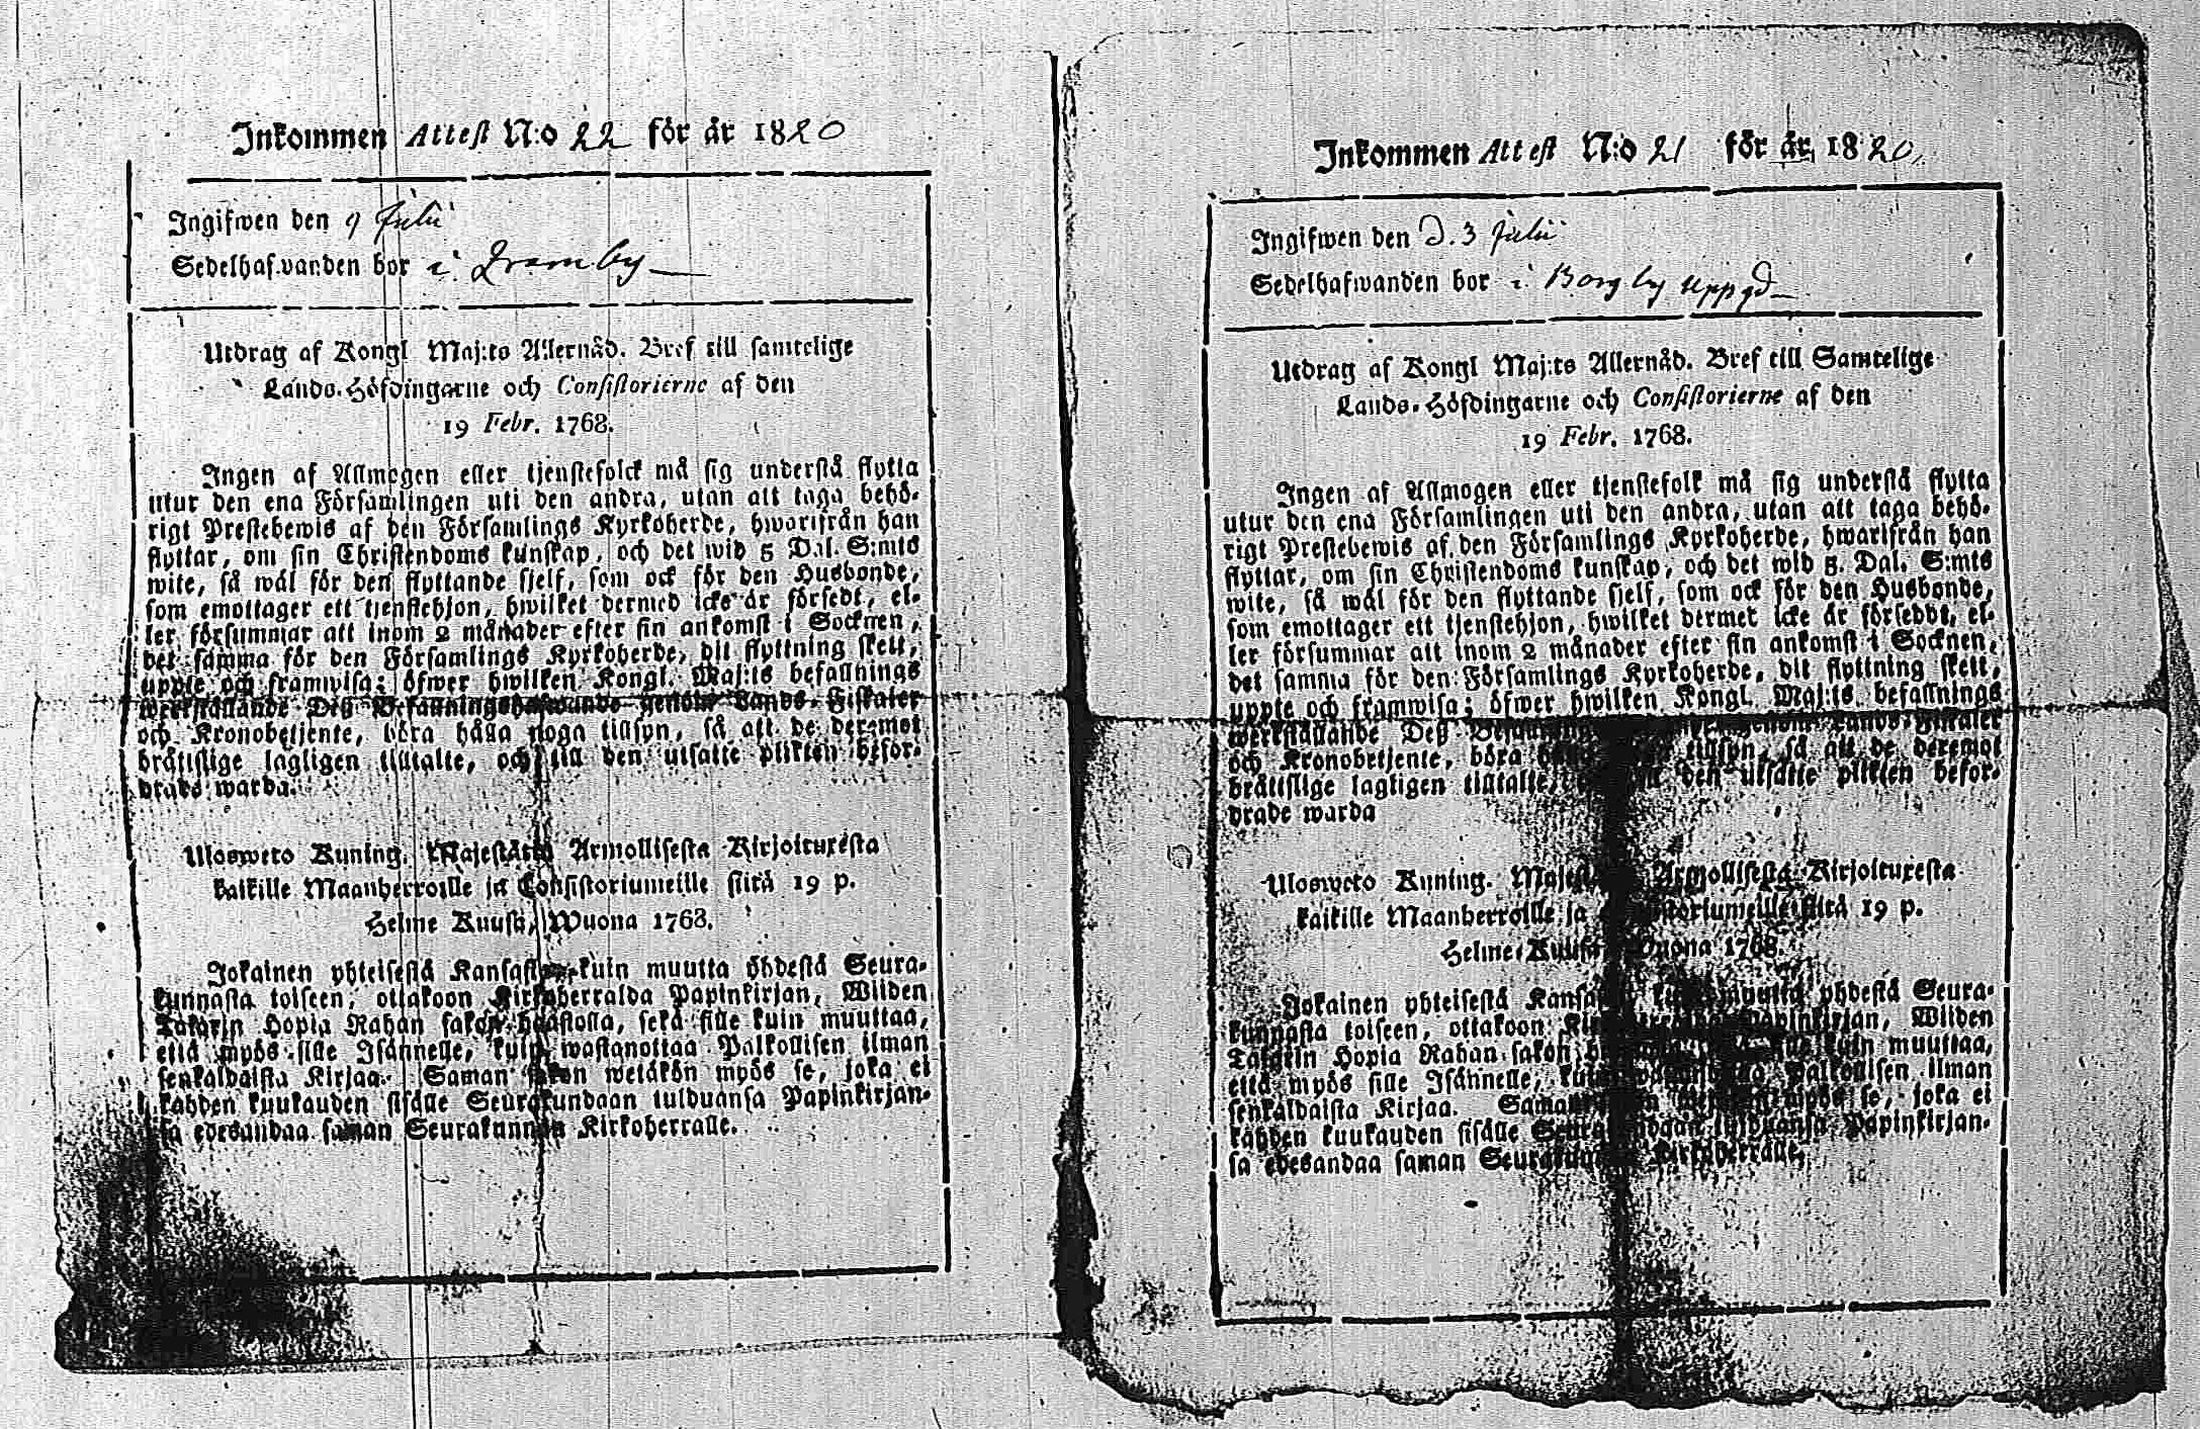 Inkommen Attest N:o 22 för år 1820
Ingifwen den 9 Julii
Sedelhafwanden bor i
Utdrag af Kongl Maj:ts Allernåd. Bref till samtelige
Lands-Höfdingarne och Consistorierne af den
19 Febr. 1768.
Ingen af Allmogen eller tjenstefolck må sig understå flytta
utur den ena Församlingen uti den andra, utan att taga behö-
rigt Prestebewis af den Församlings Kyrkoherde, hwarifrån han
flyttar, om sin Christendoms kunskap, och det wid 5 Dal. S:mts
wite, så wäl för den flyttande sjelf, som ock för den Husbonde,
som emottager ett tjenstehjon, hwilket dermed icke är försedt, el-
ler försummar att inom 2 månader efter sin ankomst i Socknen,
det samma för den Församlings Kyrkoherde, dit flyttning skett,
uppte och framwisa; öfwer hwilken Kongl. Maj:ts befallnings
werkställande Deß Befallningshafwande genom Lands-Fiskaler
och Kronobetjente, böra hålla noga tillsyn, så att de deremot
bråttslige lagligen tilltalte, och till den utsatte plikten befor-
drade warda.
Ulosweto Kuning. Majestätin Armollisesta Kirjoituxesta
kaikille Maanherroille ja Consistoriumeille siitä 19 p.
Helme Kuusa, Wuona 1768.
Jokainen yhteisestä Kansasta, kuin muutta yhdestä Seura-
kunnasta toiseen, ottakoon Kirkoherralda Papinkirjan, Wiiden
Talarin Hopia Rahan sakon haastolla, sekä sille kuin muuttaa,
että myös sille Isännelle, kuin wastanottaa Palkollisen ilman
senkaldaista Kirjaa. Saman sakon wetäkön myös se, joka ei
kahden kuukauden sisälle Seurakundaan tulduansa Papinkirjan-
sa edesandaa saman Seurakunnan Kirkoherralle.
Inkommen Attest N:o 21 för år 1820.
Ingifwen den d. 3 Julii
Sedelhafwanden bor i Borgby Uppgd
Utdrag af Kongl Maj:ts Allernåd. Bref till Samtelige
Lands-Höfdingarne och Consistorierne af den
19 Febr. 1768.
Ingen af Allmogen eller tjenstefolk må sig understå flytta
utur den ena Församlingen uti den andra, utan att taga behö-
rigt Prestebewis af den Församlings Kyrkoherde, hwarifrån han
flyttar, om sin Christendoms kunskap, och det wid 5. Dal. S:mts
wite, så wäl för den flyttande sjelf, som ock för den Husbonde,
som emottager ett tjenstehjon, hwilket dermet icke är förseddt, el-
ler försummar att inom 2 månader efter sin ankomst i Socknen,
det samma för den Församlings Kyrkoherde, dit flyttning skett,
uppte och framwisa; öfwer hwilken Kongl. Maj:ts befallnings
werkställande Deß genom Lands-Fiskaler
och Kronobetjente, böra tillsyn, så att de deremot
bråttslige lagligen tilltalte, den utsatte plikten befor-
drade warda
Uloswcto Kuning. Armollisesta Kirjoituxesta
kaikille Maanherroille ja siitä 19 p.
Helme Kuusa Wuona 1768.
Jokainen yhteisestä muutta yhdestä Seura-
kunnasta toiseen, ottakoon Papinkirjan, Wiiden
Talarin Hopia Rahan sakon kuin muuttaa,
että myös sille Isännelle, Palkollisen ilman
senkaldaista Kirjaa. Saman myös se, joka ei
kahden kuukauden sisälle tulduansa Papinkirjan-
sa edesandaa saman Seurakunnan Kirkoherralle.